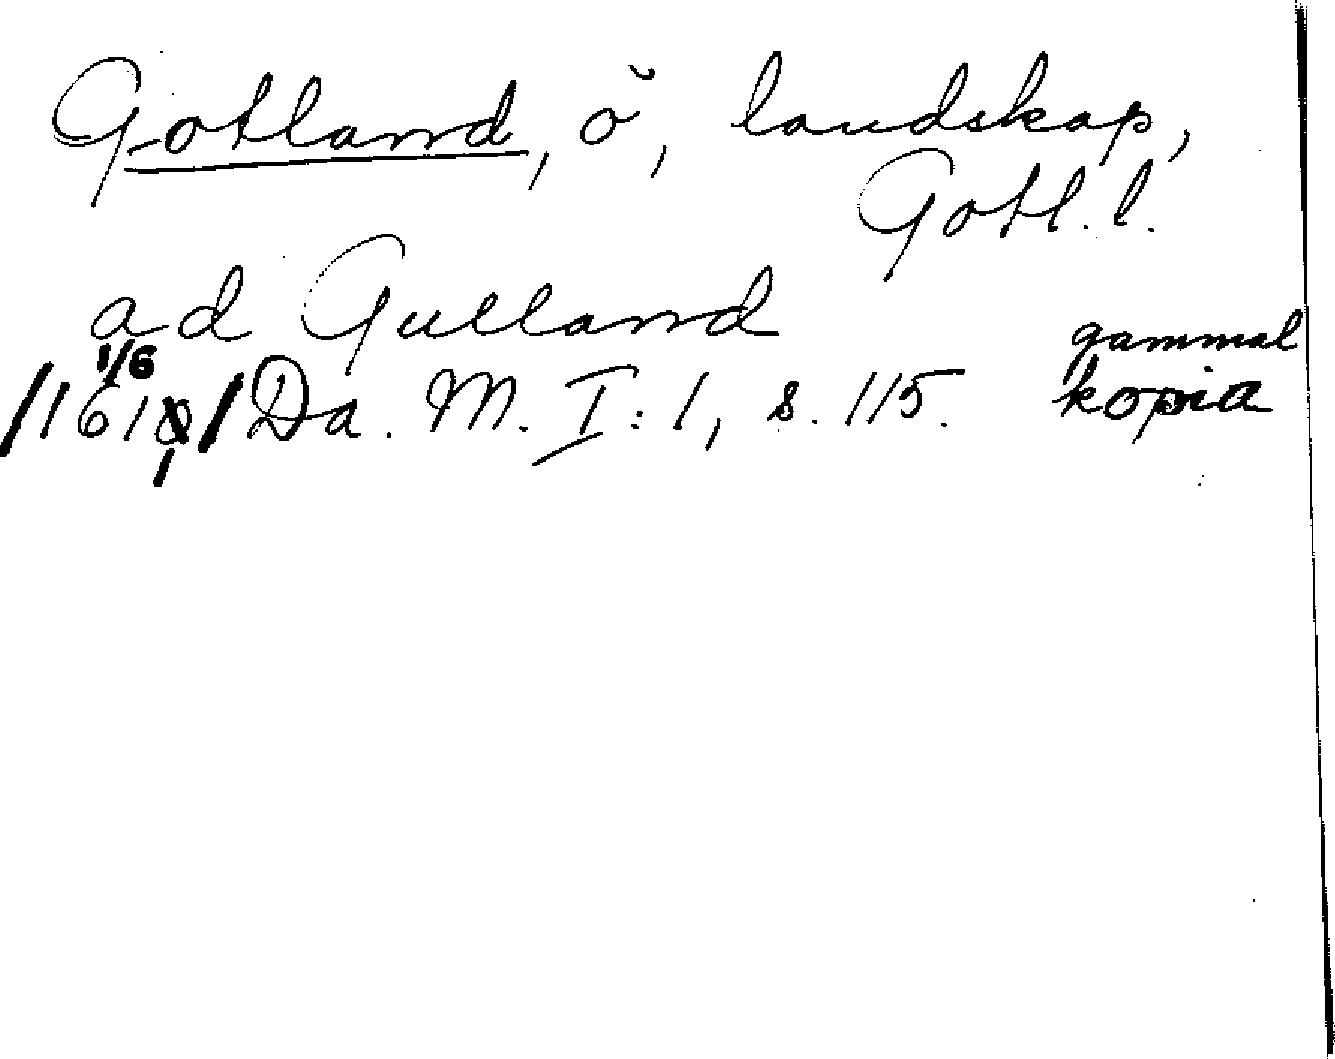 Gotland, ö, landskap,
Gotl. l.
ad Gulland
gammal
1/6
/161 / Da. M. I: 1, s. 115. kopia